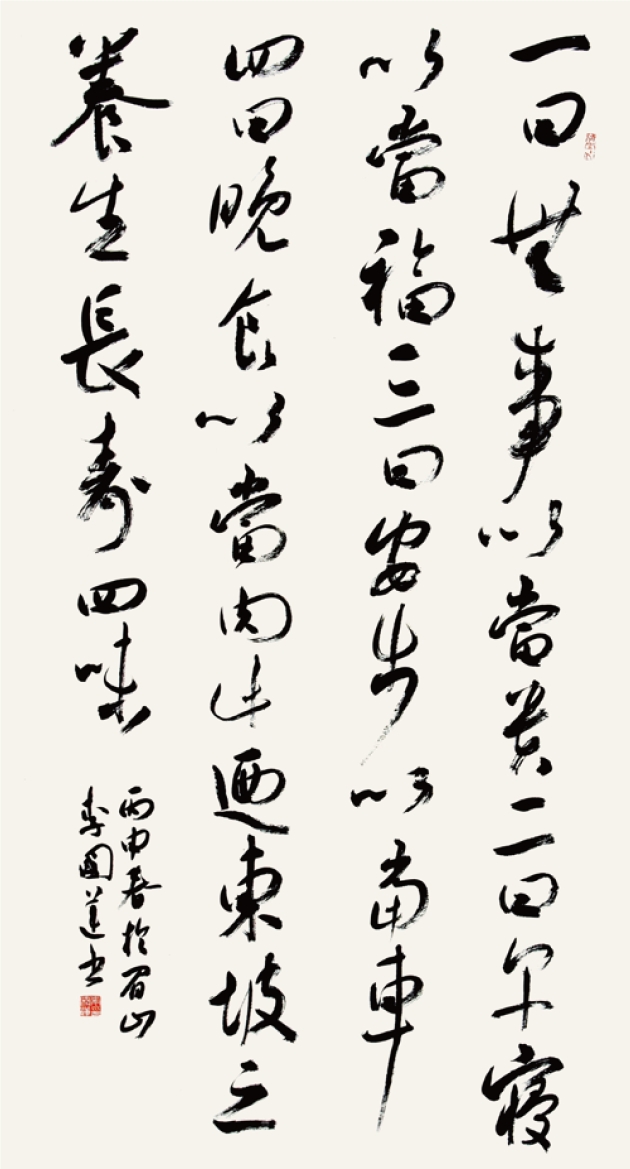 一曰無事以當貴二曰早寢
以當福三曰安步以當車
四曰晚食以當肉此迺東坡之
養生長壽四味
丙申春於眉山
李國書